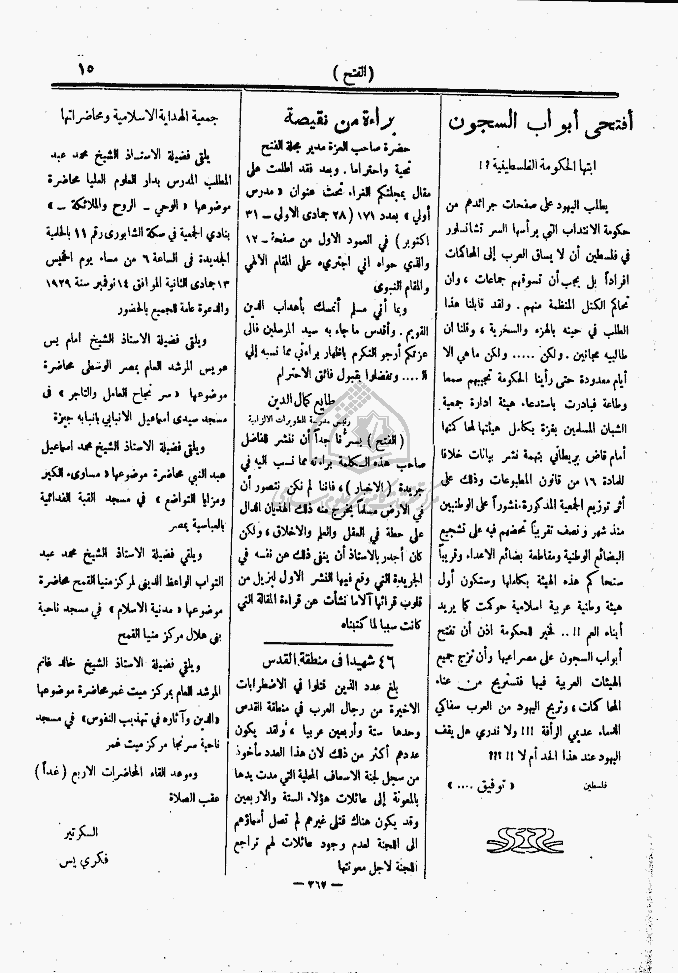 ١٥
(الفتح)
أفتحى أبواب السجون
ايتها الحكومة الفلسطينية ؟!
يطلب اليهود على صفحات جرائدهم من
حكومة الانتداب التي يرأسها السر تشانسلور
في فلسطين أن لا يساق العرب إلى المحاكمات
افراداً بل يجب أن تسوقهم جماعات ، وان
تحاكم الكتل المنظمة منهم . ولقد قابلنا هذا
الطلب في حينه بالهزء والسخرية ، وقلنا ان
طالبيه مجانين . ولكن ..... ولكن ما هي الا
أيام معدودة حتى رأينا الحكومة تجيبهم سمعا
وطاعة فبادرت باستدعاء هيئة ادارة جمعية
الشبان المسلمين بغزة بكامل هيئتها لمحاكمتها
أمام قاض بريطاني بتهمة نشر بيانات خلافا
للمادة ١٦ من قانون المطبوعات وذلك على
أثر توزيع الجمعية المذكورة نشوراً على الوطنيين
منذ شهر ونصف تقريباً تحضهم فيه على تشجيع
البضائع الوطنية ومقاطعة بضائع الاعداء وقريباً
ستحاكم هذه الهيئة بكاملها وستكون أول
هيئة وطنية عربية اسلامية حوكمت كما يريد
أبناء العم !! .. فخير للحكومة اذن أن تفتح
أبواب السجون على مصراعيها وأن تزج جميع
الهيئات العربية فيها فتستريح من عناء
المحاكمات ، وتريح اليهود من العرب سفاكي
الدماء عديمي الرأفة !!! ولا ندري هل يقف
اليهود عند هذا الحد أم لا !! ؟؟؟
فلسطين « توفيق .... »
براءة من نقيصة
حضرة صاحب العزة مدير مجلة الفتح
تحية واحتراما . وبعد فقد اطلعت على
مقال بمجلتكم الغراء تحت عنوان « مدرس
أولي » بعدد ١٧١ (٢٨ جمادى الاولى ــ ٣١
اكتوبر) في العمود الاول من صفحة ــ ١٢
والذي حواه اني اجتريء على المقام الالهي
والمقام النبوى
وبما أني مسلم أتمسك بأهداب الدين
القويم . وأقدس ما جاء به سيد المرسلين فالى
عزتكم أرجو التكرم باظهار براءتي مما نسبه إلي
الـ .... وتفضلوا بقبول فائق الاحترام
طايع كمال الدين
رئيس مدرسة الطويرات الالزامية
(الفتح) يسرنا جداً أن ننشر للفاضل
صاحب هذه الكلمة براءته مما نسب اليه في
جريدة (الاخبار) ، فاننا لم نكن نتصور أن
في الارض مسلماً يخرج منه ذلك الهذيان الدال
على حطة في العقل والعلم والاخلاق ، ولكن
كان أجدر بالاستاذ أن ينفى ذلك عن نفسه في
الجريدة التي وقع فيها النشر الاول ليزيل من
قلوب قرائها آلاما نشأت عن قراءة المقالة التي
كانت سببا لما كتبناه
٤٦ شهيدا فى منطقة القدس
بلغ عدد الذين قتلوا في الاضطرابات
الاخيرة من رجال العرب في منطقة القدس
وحدها ستة وأربعين عربيا ، ولقد يكون
عددهم أكثر من ذلك لان هذا العدد مأخوذ
من سجل لجنة الاسعاف المحلية التي مدت يدها
بالمعونة إلى عائلات هؤلاء الستة والاربعين
وقد يكون هناك قتلى غيرهم لم تصل أسماؤهم
الى اللجنة لعدم وجود عائلات لهم تراجع
اللجنة لاجل معونتها
جمعية الهداية الاسلامية ومحاضراتها
يلقى فضيلة الاستاذ الشيخ محمد عبد
المطلب المدرس بدار العلوم العليا محاضرة
موضوعها « الوحي ــ الروح والملائكة ــ »
بنادي الجمعية في سكة الشابورى رقم ١١ بالحلمية
الجديدة فى الساعة ٦ من مساء يوم الخميس
١٣ جمادى الثانية الموافق ١٤ نوفمبر سنة ١٩٢٩
والدعوة عامة للجميع بالحضور
ويلقى فضيلة الاستاذ الشيخ امام يس
عويس المرشد العام بمصر الوسطى محاضرة
موضوعها « سر نجاح العامل والتاجر » فى
مسجد سيدى اسماعيل الانبابي بانبابه جيزة
ويلقى فضيلة الاستاذ الشيخ محمد اسماعيل
عبد النبي محاضرة موضوعها « مساوىء الكبر
ومزايا التواضع » في مسجد القبة الفدائية
بالعباسية بمصر
ويلقي فضيلة الاستاذ الشيخ محمد عبد
التواب الواعظ الدينى لمركز منيا القمح محاضرة
موضوعها « مدنية الاسلام » في مسجد ناحية
بنى هلال مركز منيا القمح
ويلقي فضيلة الاستاذ الشيخ خالد غانم
المرشد العام بمركز ميت غمر محاضرة موضوعها
« الدين وآثاره في تهذيب النفوس » في مسجد
ناحية سرنجا مركز ميت غمر
وموعد القاء المحاضرات الاربع (غداً)
عقب الصلاة
السكرتير
فكري يس
— ٣٦٧ —